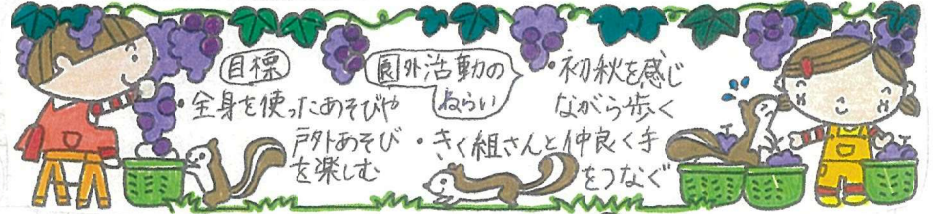 目標
・全身を使ったあそびや
戸外あそび
を楽しむ
園外活動の
ねらい
・初秋を感じ
ながら歩く
・きく組さんと仲良く手
をつなぐ